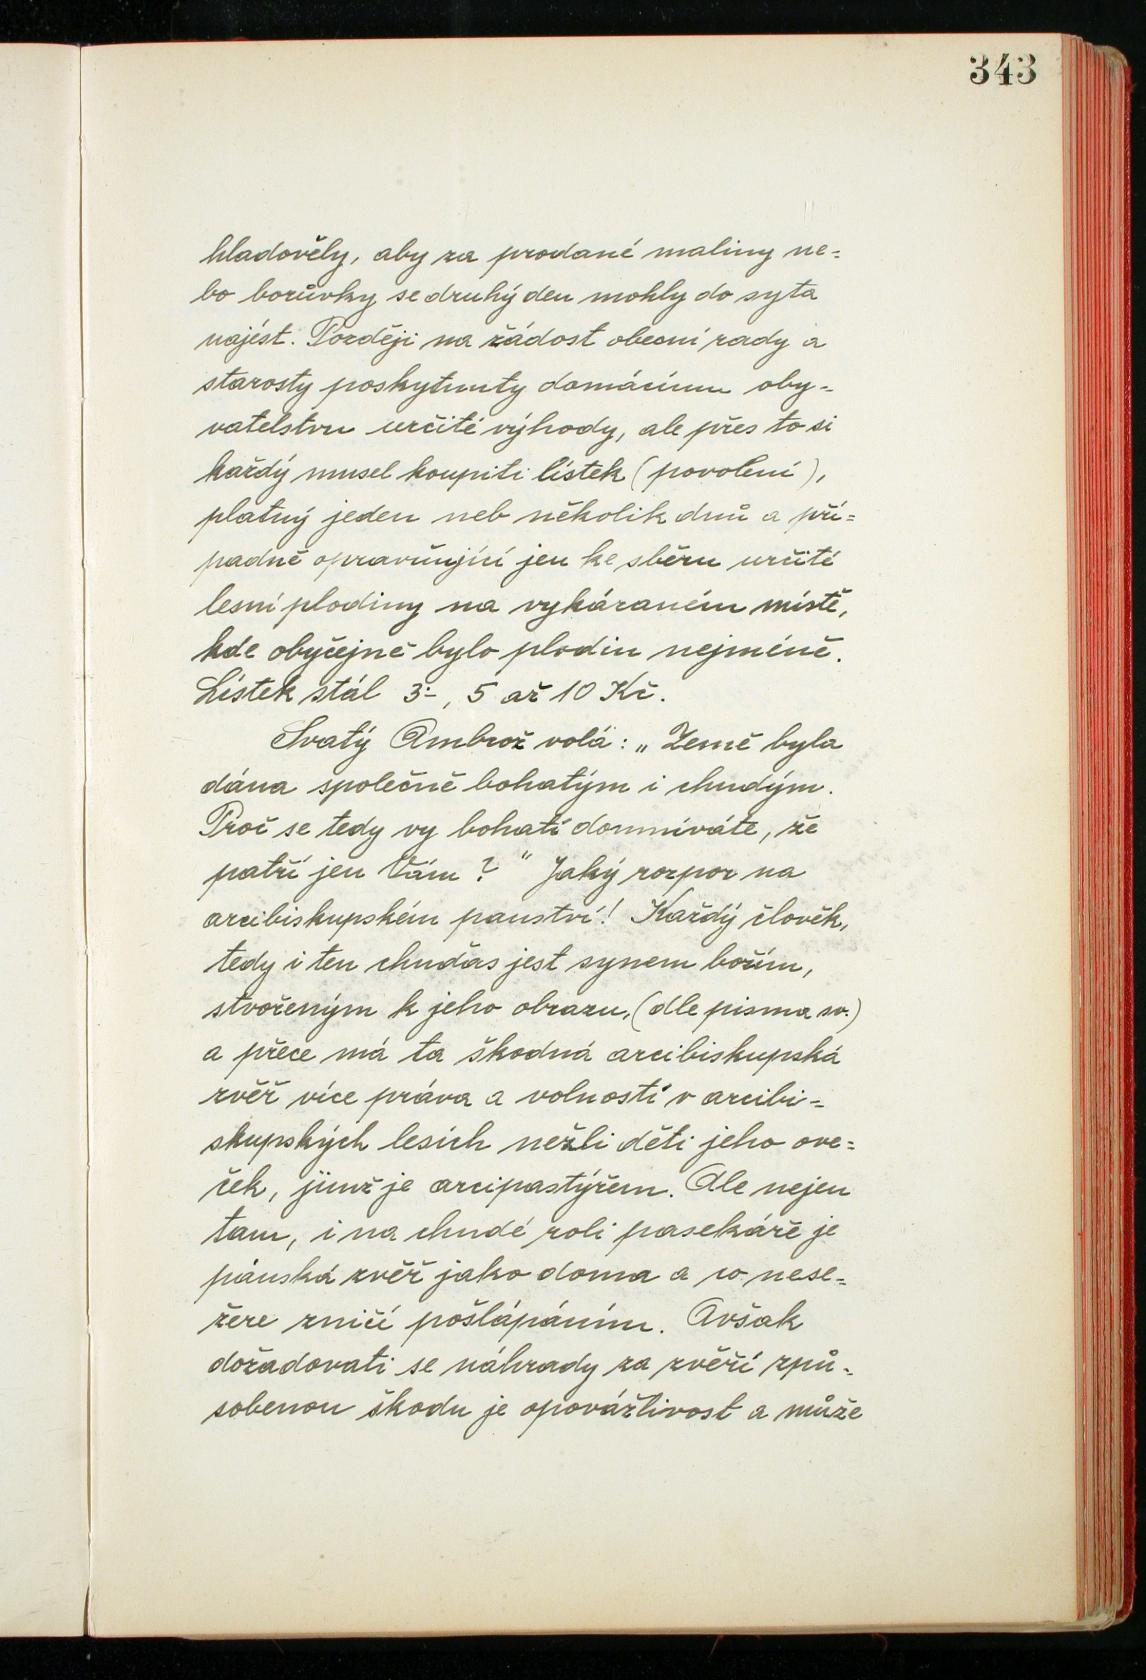 343
hladověly, aby za prodané maliny ne-
bo borůvky se druhý den mohly do syta
najést. Později na žádost obecní rady a
starosty poskytnuty domácímu oby-
vatelstvu určité výhody, ale přes to si
každý musel koupiti lístek (povolení),
platný jeden neb několik dnů a pří-
padně opravňující jen ke sběru určité
lesní plodiny na vykázaném místě,
kde obyčejně bylo plodin nejméně.
Lístek stál 3·-, 5 až 10 Kč.
Svatý Ambrož volá: „Země byla
dána společně bohatým i chudým.
Proč se tedy vy bohatí domníváte, že
patří jen Vám?" Jaký rozpor na
arcibiskupském panství! Každý člověk,
tedy i ten chuďas jest synem božím,
stvořeným k jeho obrazu, (dle pisma sv.)
a přece má ta škodná arcibiskupská
zvěř více práva a volnosti v arcibi-
skupských lesích nežli děti jeho ove-
ček, jimž je arcipastýřem. Ale nejen
tam, i na chudé roli pasekáře je
pánská zvěř jako doma a co nese-
žere zničí pošlápáním. Avšak
dožadovati se náhrady za zvěří způ-
sobenou škodu je opovážlivost a může